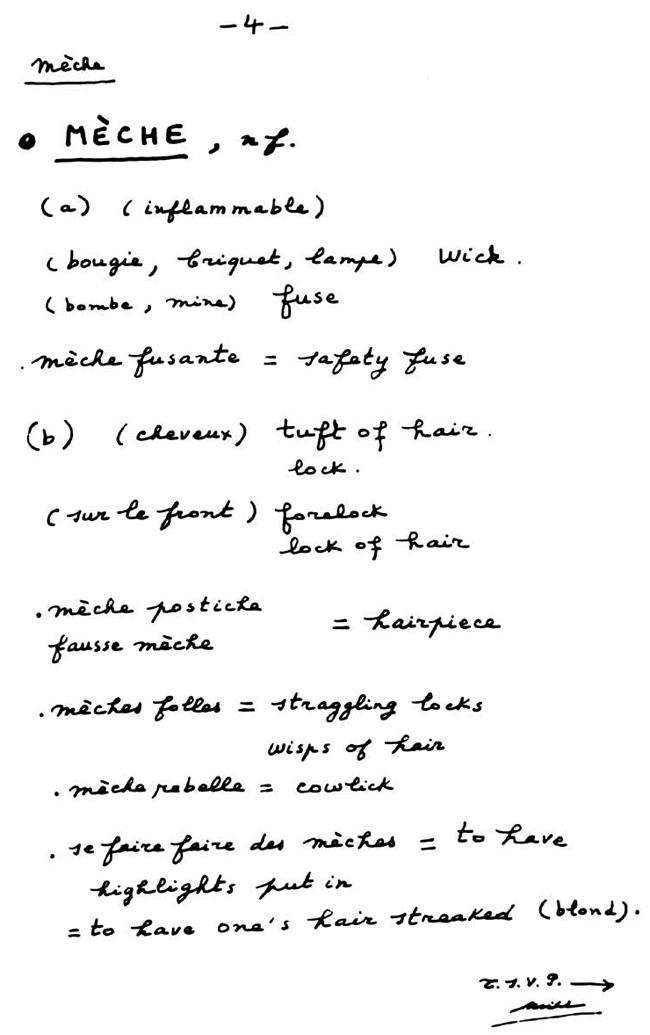 -4-
mèche
• MÈCHE, nf.
(a) (inflammable)
(bougie, briquet, lampe) wick.
(bombe, mine) fuse
. mèche fusante = safety fuse
(b) (cheveux) tuft of hair.
lock.
(sur le front) forelock
lock of hair
. mèche postiche
fausse mèche = hairpiece
. mèches folles = straggling locks
wisps of hair
. mèche rebelle = cowlick
. se faire faire des mèches = to have
highlights put in
= to have one's hair streaked (blond).
T.S.V.P. →